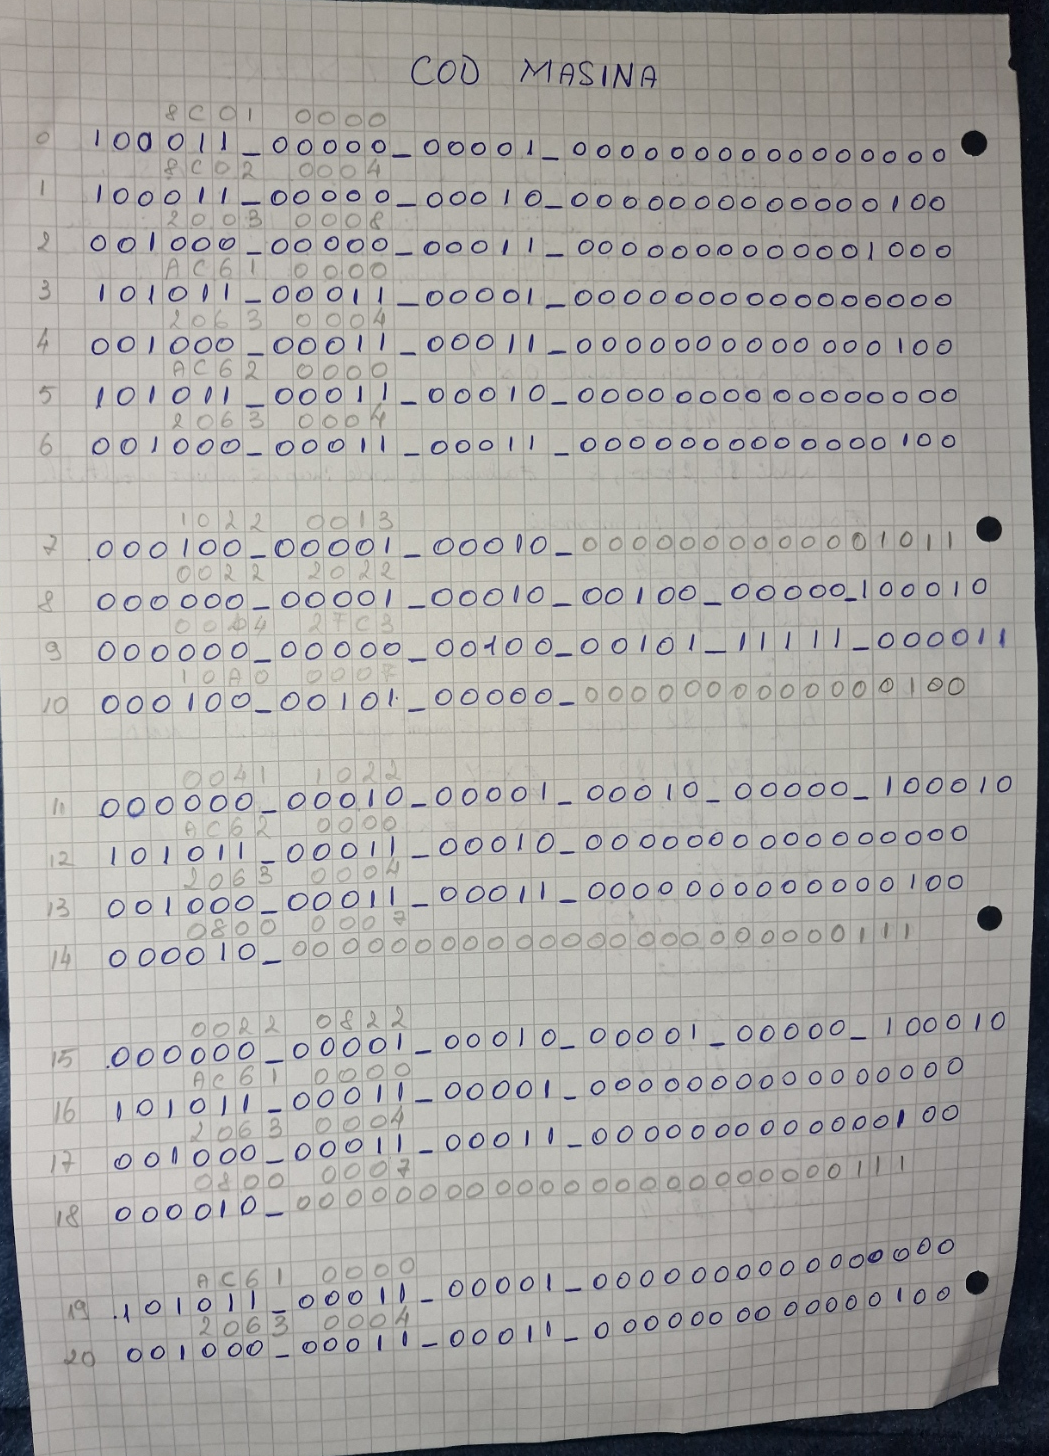 COD MASINA
8C01 0000
0 100011_00000_00001_0000000000000000
8C02 0004
1 100011_00000_00010_0000000000000100
2003 0008
2 001000_00000_00011_0000000000001000
AC61 0000
3 101011_00011_00001_0000000000000000
2063 0004
4 001000_00011_00011_0000000000000100
AC62 0000
5 101011_00011_00010_0000000000000000
2063 0004
6 001000_00011_00011_0000000000000100
1022 0013
7 000100_00001_00010_0000000000001011
0022 2022
8 000000_00001_00010_00100_00000_100010
27C3
9 000000_00000_00100_00101_11111_000011
10A0 0007
10 000100_00101_00000_0000000000000100
0041 1022
11 000000_00010_00001_00010_00000_100010
AC62 0000
12 101011_00011_00010_0000000000000000
2063 0004
13 001000_00011_00011_0000000000000100
0800 0007
14 000010_00000000000000000000000111
0022 0822
15 000000_00001_00010_00001_00000_100010
AC61 0000
16 101011_00011_00001_0000000000000000
2063 0004
17 001000_00011_00011_0000000000000100
0800 0007
18 000010_00000000000000000000000111
AC61 0000
19 101011_00011_00001_0000000000000000
2063 0004
20 001000_00011_00011_0000000000000100